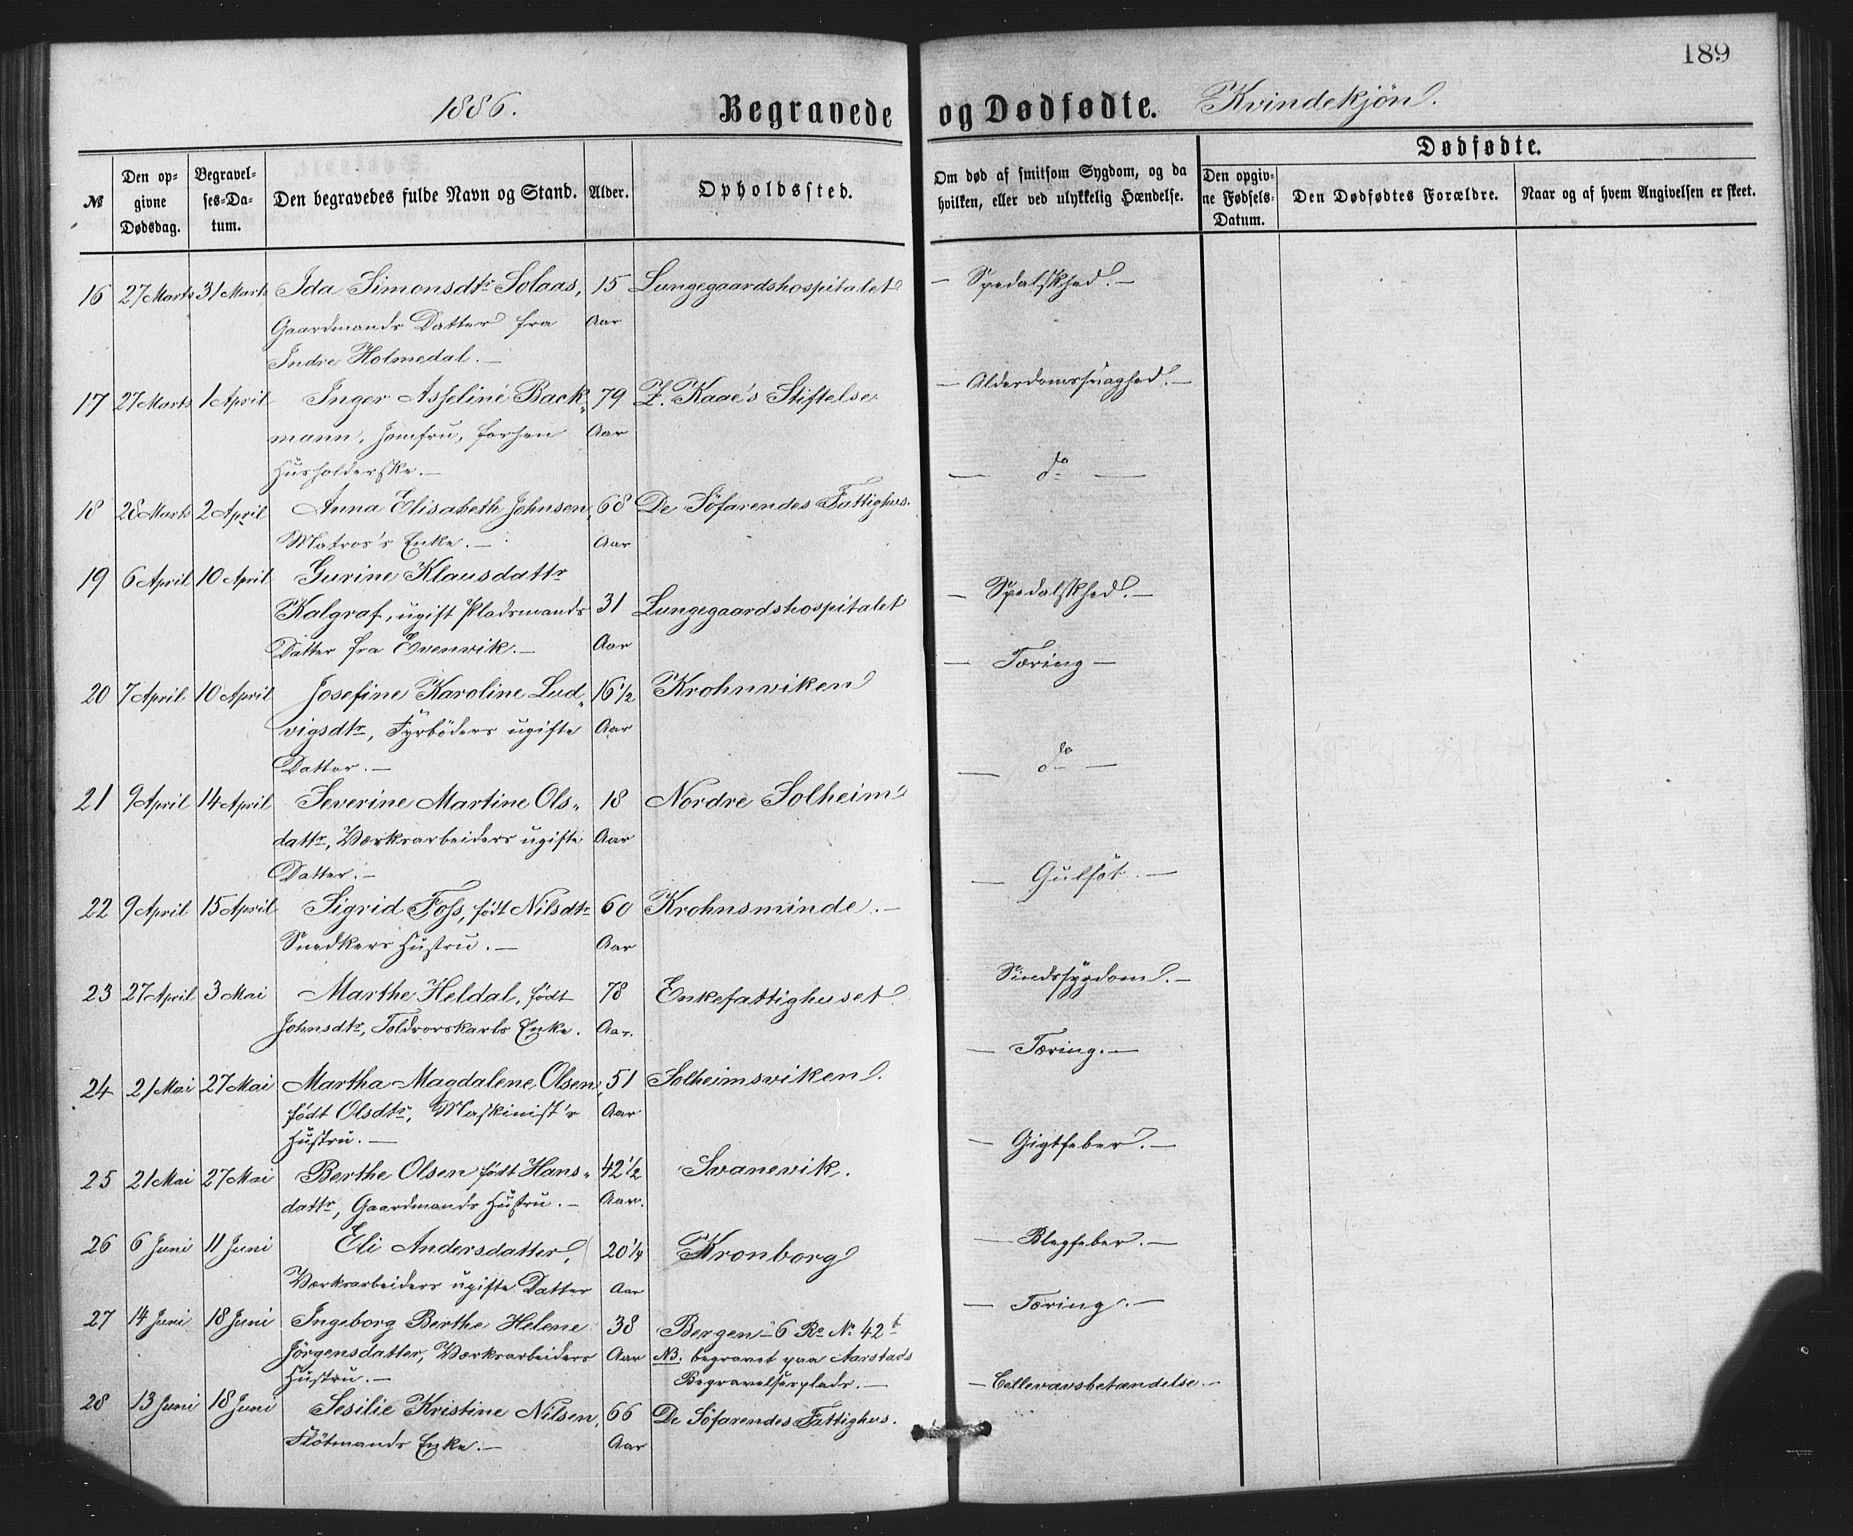 189
1886.
Begravede og Dødfødte. Kvindekjøn.
№
Den opgivne Dødsdag.
Begravelses-Datum.
Den begravedes fulde Navn og Stand.
Alder.
Opholdssted.
Om død af smitsom Sygdom, og da hvilken, eller ved ulykkelig Hændelse.
Dødfødte.
Den opgivne Fødsels-Datum.
Den Dødfødtes Forældre.
Naar og af hvem Angivelsen er skeet.
16 27 Marts 31 Marts Ida Simonsdtr Solaas, 15 Lungegaardshospitalet — Spedalskhed. —
Gaardmands Datter fra Aar
Indre Holmedal. —
17 27 Marts 1 April Inger Asseline Back- 79 Z. Kaae's Stiftelse — Alderdomssvaghed. —
mann, Jomfru, forhen Aar
Husholderske. —
18 28 Marts 2 April Anna Elisabeth Johnsen, 68 De Söfarendes Fattighus. — do —
Matros's Enke. — Aar
19 6 April 10 April Gurine Klausdattr
Kalgraf, ugift Pladsmands 31 Lungegaardshospitalet — Spedalskhed. —
Datter fra Evenvik. — Aar
20 7 April 10 April Josefine Karoline Lud- 16 1/2 Krohnviken — Tæring —
vigsdtr, Fyrböders ugifte Aar
Datter. —
21 9 April 14 April Severine Martine Ols- 18 Nordre Solheim — do —
dattr, Værksarbeiders ugifte Aar
Datter. —
22 9 April 15 April Sigrid Foss, födt Nilsdtr 60 Krohnsminde. — — Gulsöt. —
Snedkers Hustru. — Aar
23 27 April 3 Mai Marthe Heldal, födt 78 Enkefattighuset Sindssygdom. —
Johnsdtr, Toldrorskarls Enke. Aar.
24 21 Mai 27 Mai Martha Magdalene Olsen, 51 Solheimsviken. — Tæring. —
födt Olsdtr, Maskinist's Aar
Hustru. —
25 21 Mai 27 Mai Berthe Olsen födt Hans- 42 1/2 Svanevik. — Gigtfeber. —
dattr, Gaardmands Hustru. — Aar.
26 6 Juni 11 Juni Eli Andersdatter, 20 1/4 Kronborg — Blegfeber. —
Værksarbeiders ugifte Datter Aar
27 14 Juni 18 Juni Ingeborg Berthe Helene 38 Bergen - 6 Ro No 42 b — Tæring. —
Jörgensdatter, Værksarbeiders Aar NB. begravet paa Aarstads
Hustru. — Begravelsesplads. —
28 13 Juni 18 Juni Sesilie Kristine Nilsen, 66 De Söfarendes Fattighus. — Cellevævsbetændelse. —
Flötmands Enke. — Aar